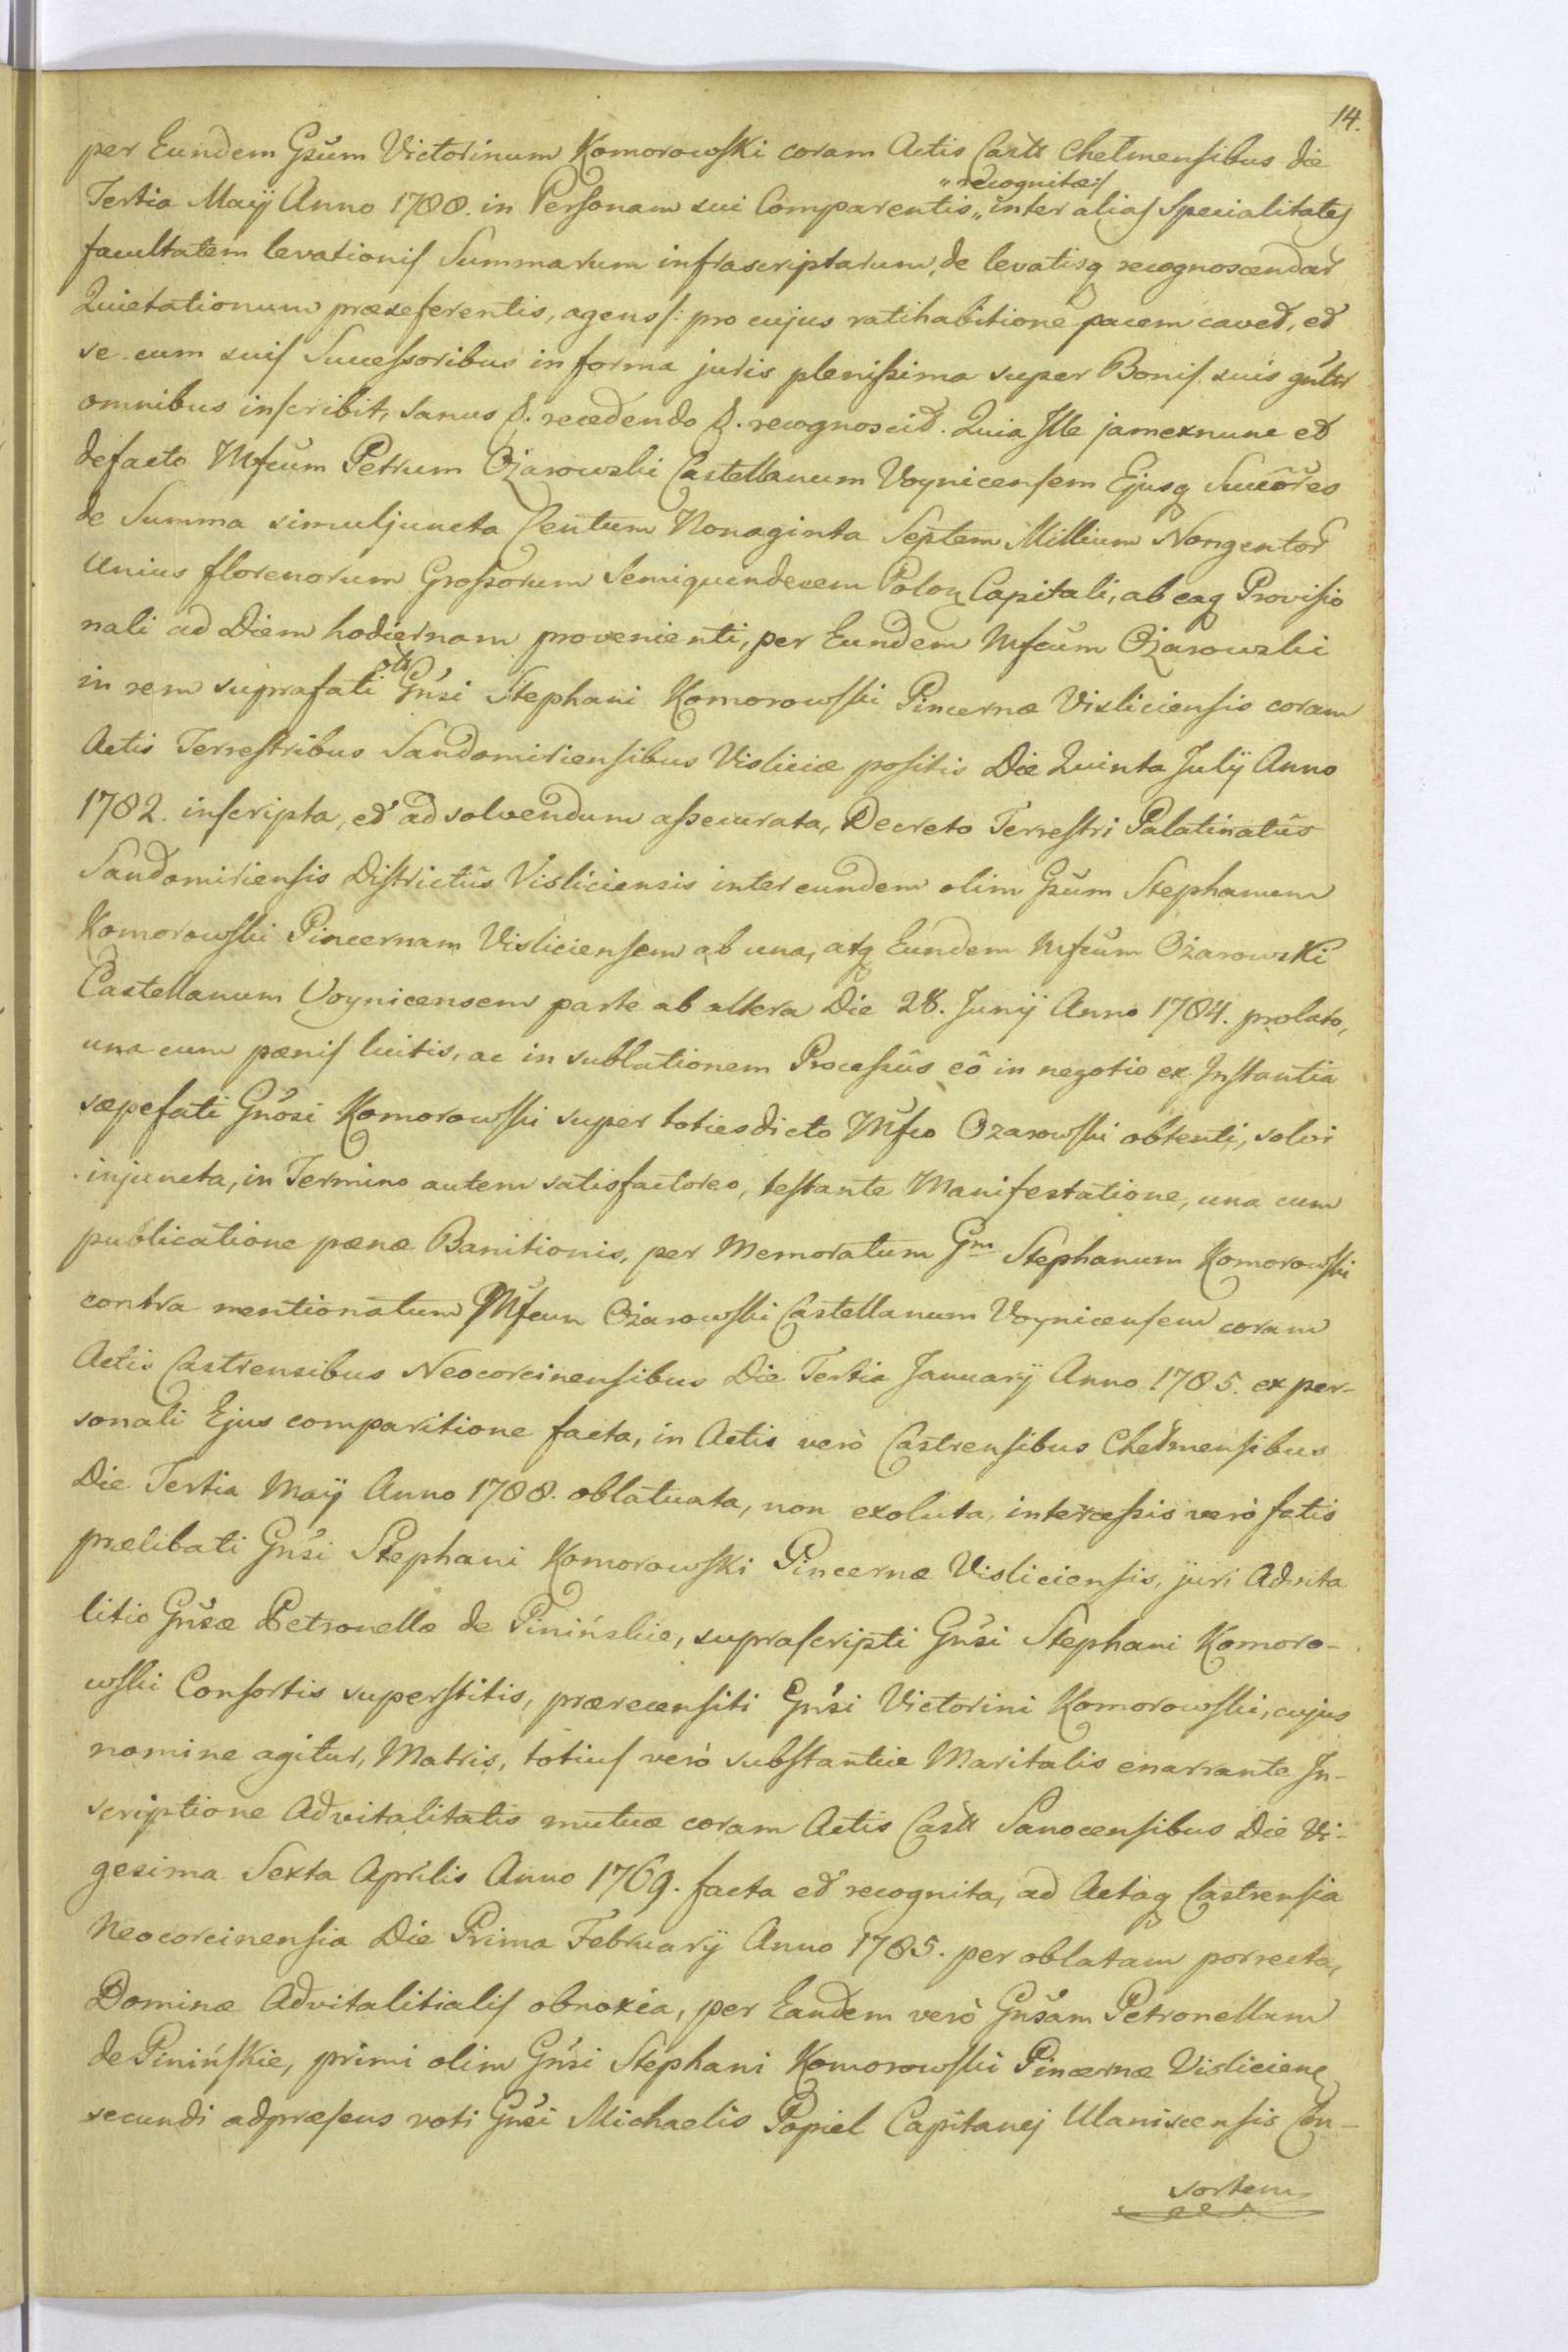 14.
per Eundem Gsum Victorinum Komorowski coram Actis Castt Chełmensibus die
„recognitæ:/
Tertia Maij Anno 1788. in Personam sui Comparentis „ inter alias Specialitates
facultatem levationis Summarum infrascriptarum, de levatisq recognoscendar
Quietationum præseferentis, agens/: pro cujus ratihabitione pacem caved, ed
se cum suis Successoribus in forma juris plenissima super Bonis suis gnltr
omnibus inscribit, sanus &. recedendo &. recognoscid. Quia Ille jamexnunc ed
defacto Mfcum Petrum Ożarowski Castellanum Voynicensem Ejusq Succōres
de Summa simuljuncta Centum Nonaginta Septem Millium Nongentor
Unius florenorum Grossorum Semiquindecem Polon Capitali, ab eaq Provisio
nali ad Diem hodiernam provenienti, per Eundem Mfcum Ożarowski
in rem suprafati Gnsi Stephani Komorowski Pincernæ Visliciensis coram
Actis Terrestribus Sandomiriensibus Visliciæ positis Die Quinta Julij Anno
1782. inscripta, ed ad solvendum assecurata, Decreto Terrestri Palatinatûs
Sandomiriensis Districtûs Visliciensis inter eundem olim Gsum Stephanum
Komorowski Pincernam Visliciensem ab una, atq Eundem Mfcum Ożarowski
Castellanum Voynicensem parte ab altera Die 28. Junij Anno 1784. prolato,
una cum pænis luitis, ac in sublationem Processûs eô in negotio ex Instantia
sæpefati Gnosi Komorowski super totiesdicto Mfco Ozarowski obtenti, solvi
injuncta, in Termino autem satisfactoreo, testante Manifestatione, una cum
publicatione pænæ Banitionis, per Memoratum Gm Stephanum Komorowski
contra mentionatum Mfcum Ożarowski Castellanum Voynicensem coram
Actis Castrensibus Neocorcinensibus Die Tertia Januarij Anno 1785. ex per-
sonali Ejus comparitione facta, in Actis verò Castrensibus Chełmensibus
Die Tertia Maij Anno 1788. oblatuata, non exoluta, intercessis verò fatis
prælibati Gnsi Stephani Komorowski Pincernæ Visliciensis, juri Advita
litio Gnsæ Petronellæ de Pinińskie, suprascripti Gnsi Stephani Komoro-
wski Consortis superstitis, præcensiti Gnsi Victorini Komorowski, cujus
nomine agitur, Matris, totius verò substantiæ Maritalis enarrante In-
scriptione Advitalitatis mutuæ coram Actis Castt Sanocensibus Die Vi-
gesima Sexta Aprilis Anno 1769. facta ed recognita, ad Actaq Castrensia
Neocorcinensia Die Prima Februarij Anno 1785. per oblatam porrecta,
Dominæ Advitalitialis obnoxia, per Eandem verò Gnsam Petronellam
de Pinińskie, primi olim Gnsi Stephani Komorowski Pincernæ Visliciens
secundi adpræsens voti Gnsi Michaelis Popiel Capitanej Ulaniscensis Con-
sortem